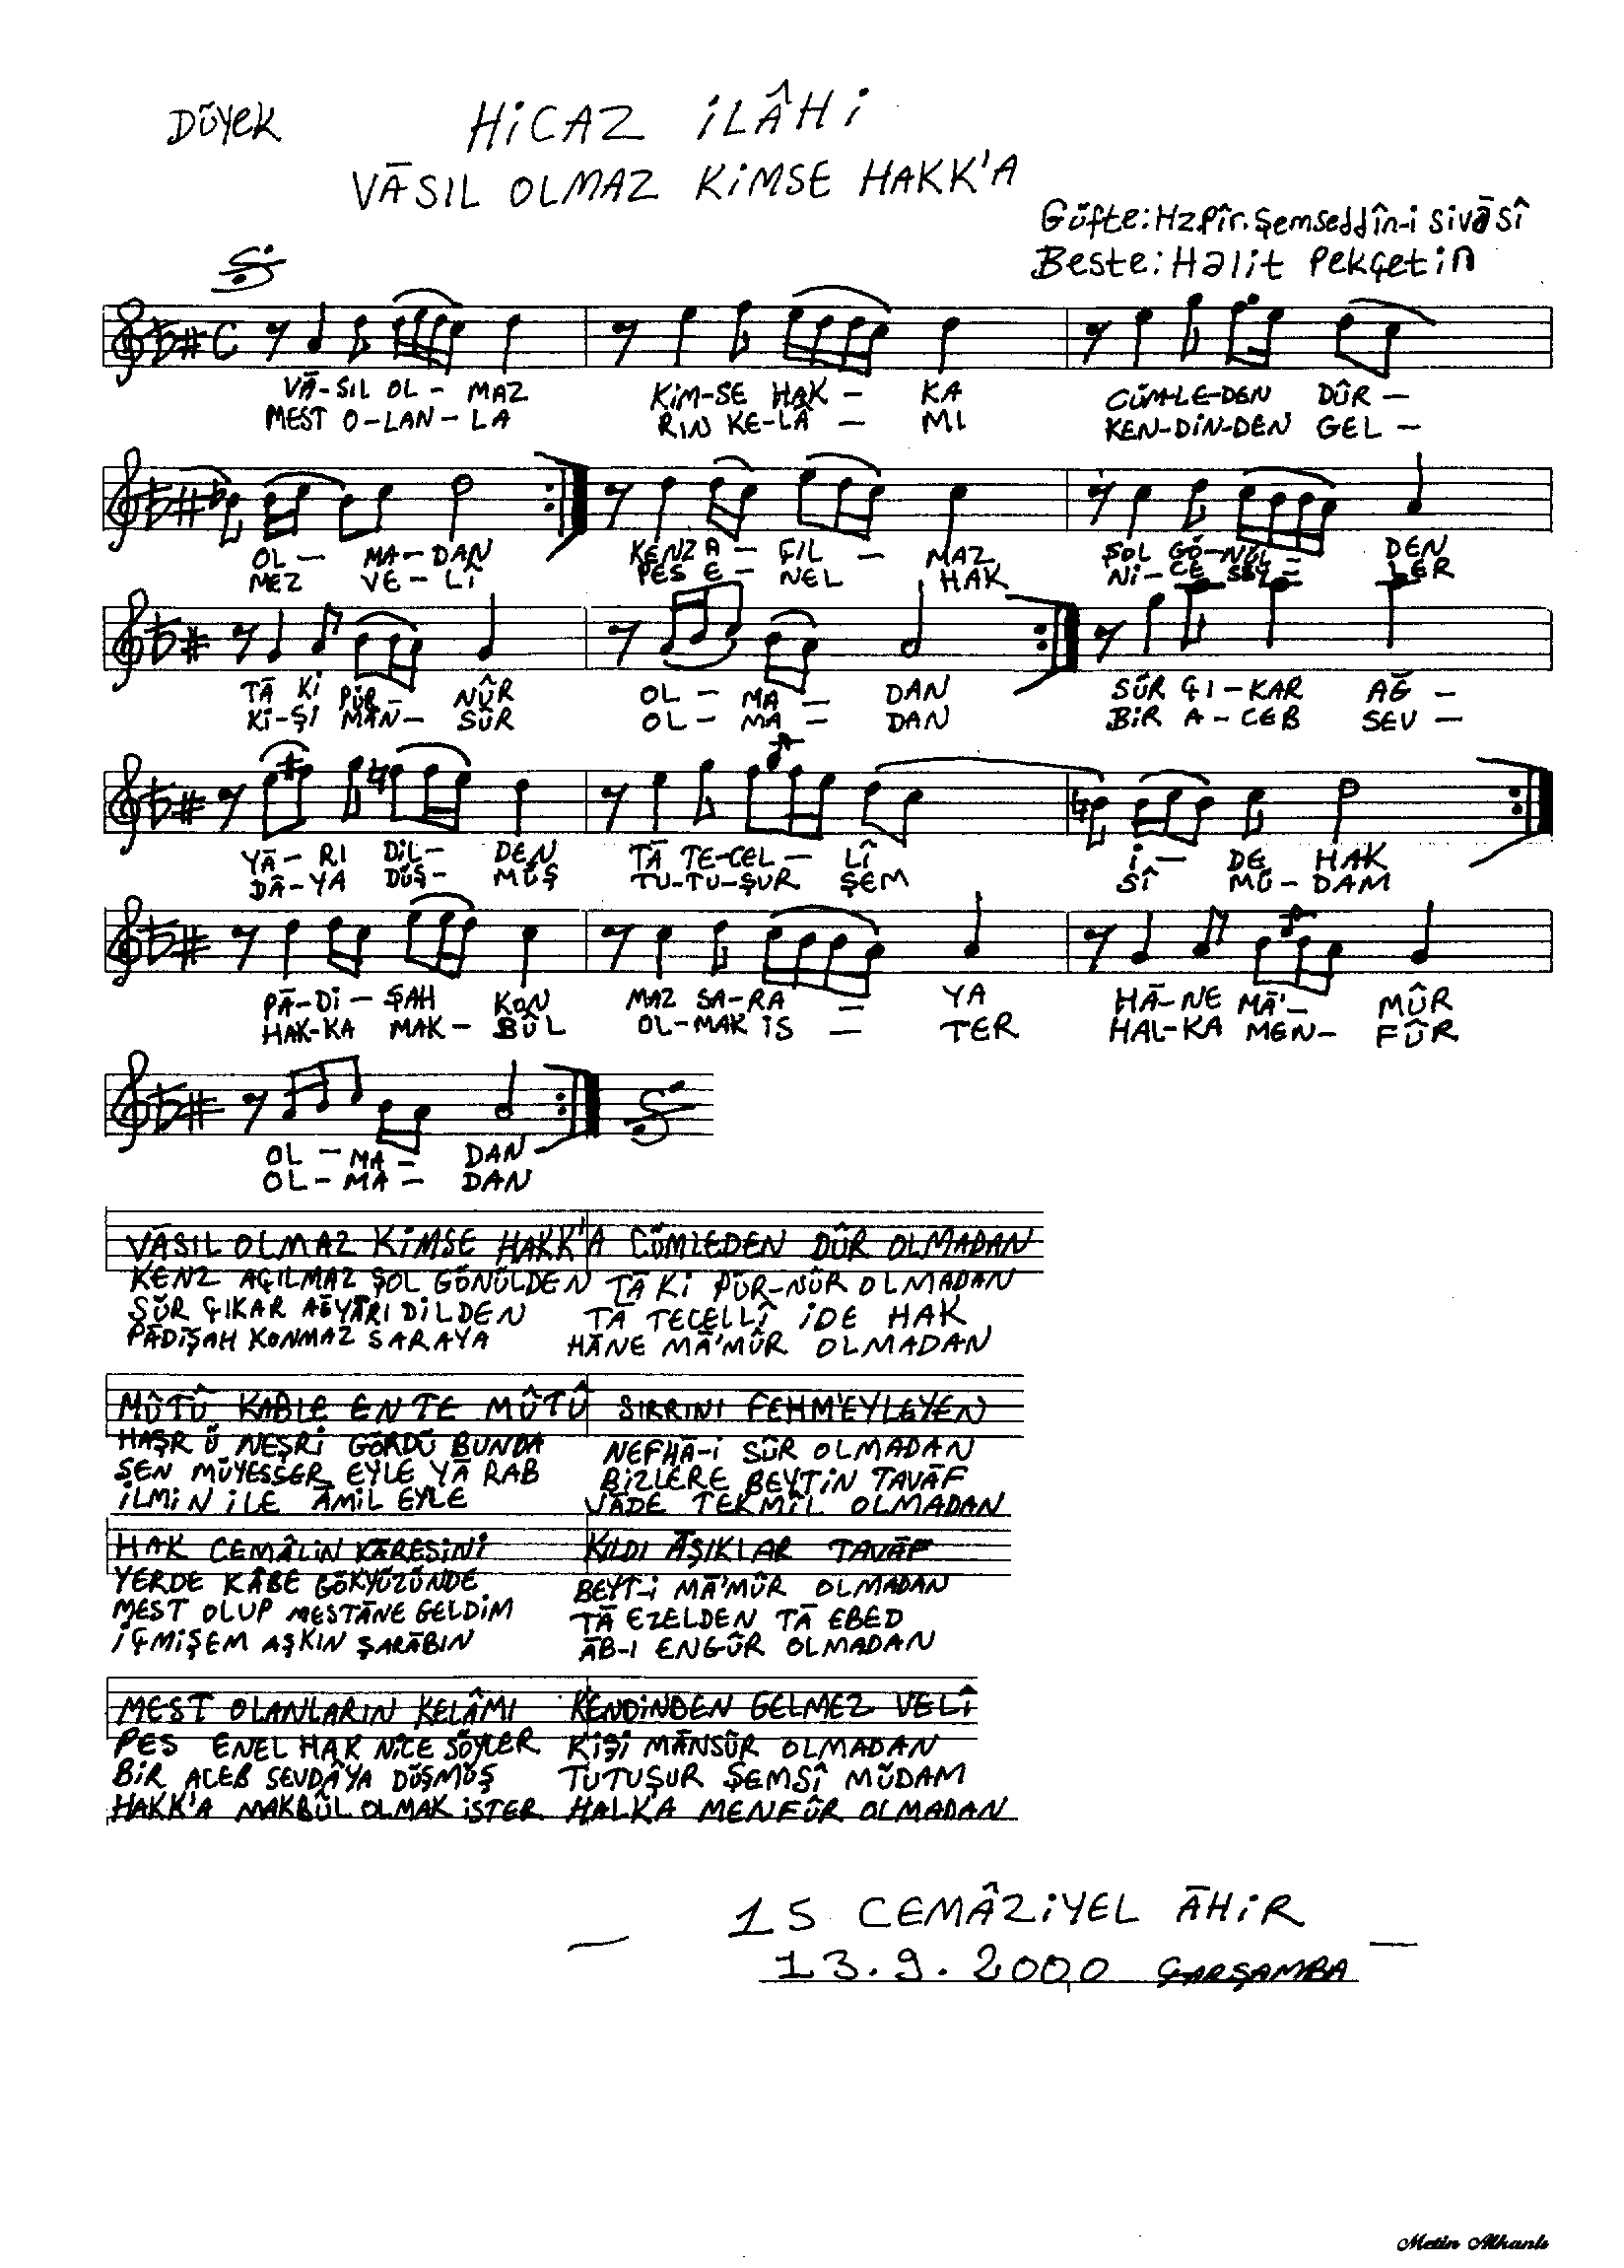 DÜYEK
HİCAZ İLÂHİ
VĀSIL OLMAZ KİMSE HAKK'A
Güfte: Hz.Pîr. Şemseddîn-i Sivāsî
Beste: Halit Pekçetin
VĀ-SIL OL- MAZ KİM-SE HAK - KA CÜM-LE-DEN DÛR -
MEST O-LAN-LA RIN KE-LÂ - MI KEN-DİN-DEN GEL -
OL - MA-DAN KENZ A - ÇIL - MAZ ŞOL GÖ-NÜL- DEN
MEZ VE-LÎ PES E - NEL HAK Nİ-CE SÖY- LER
TĀ Kİ PÜR- NÛR OL - MA - DAN SÜR ÇI-KAR AĞ -
Kİ-Şİ MAN- SÛR OL - MA - DAN BİR A-CEB SEV -
YĀ-RI DİL- DEN TĀ TE-CEL- LÎ İ - DE HAK
DÂ-YA DÜŞ- MÜŞ TU-TU-ŞUR ŞEM SÎ MÜ-DAM
PĀ-Dİ-ŞAH KON MAZ SA-RA - YA HĀ-NE MĀ'- MÛR
HAK-KA MAK- BÛL OL-MAK İS - TER HAL-KA MEN- FÛR
OL - MA - DAN
OL - MA - DAN
VĀSIL OLMAZ KİMSE HAKK'A CÜMLEDEN DÛR OLMADAN
KENZ AÇILMAZ ŞOL GÖNÜLDEN TĀ Kİ PÜR-NÛR OLMADAN
SÜR ÇIKAR AĞYĀRI DİLDEN TĀ TECELLÎ İDE HAK
PĀDİŞAH KONMAZ SARAYA HĀNE MĀ'MÛR OLMADAN
MÛTÛ KABLE ENTE MÛTÛ SIRRINI FEHM'EYLEYEN
HAŞR Ü NEŞRİ GÖRDÜ BUNDA NEFHĀ-İ SÛR OLMADAN
SEN MÜYESSER EYLE YĀ RAB BİZLERE BEYTİN TAVĀF
İLMİN İLE ĀMİL EYLE VĀDE TEKMÎL OLMADAN
HAK CEMÂLİN KĀRESİNİ KILDI ĀŞIKLAR TAVĀF
YERDE KÂBE GÖKYÜZÜNDE BEYT-İ MĀ'MÛR OLMADAN
MEST OLUP MESTĀNE GELDİM TĀ EZELDEN TĀ EBED
İÇMİŞEM AŞKIN ŞARĀBIN ĀB-I ENGÛR OLMADAN
MEST OLANLARIN KELÂMI KENDİNDEN GELMEZ VELÎ
PES ENEL HAK NİCE SÖYLER KİŞİ MĀNSÛR OLMADAN
BİR ACEB SEVDÂYA DÜŞMÜŞ TUTUŞUR ŞEMSÎ MÜDAM
HAKK'A MAKBÛL OLMAK İSTER HALK'A MENFÛR OLMADAN
15 CEMÂZİYEL ĀHİR
13.9.2000 ÇARŞAMBA
Metin Alkanlı